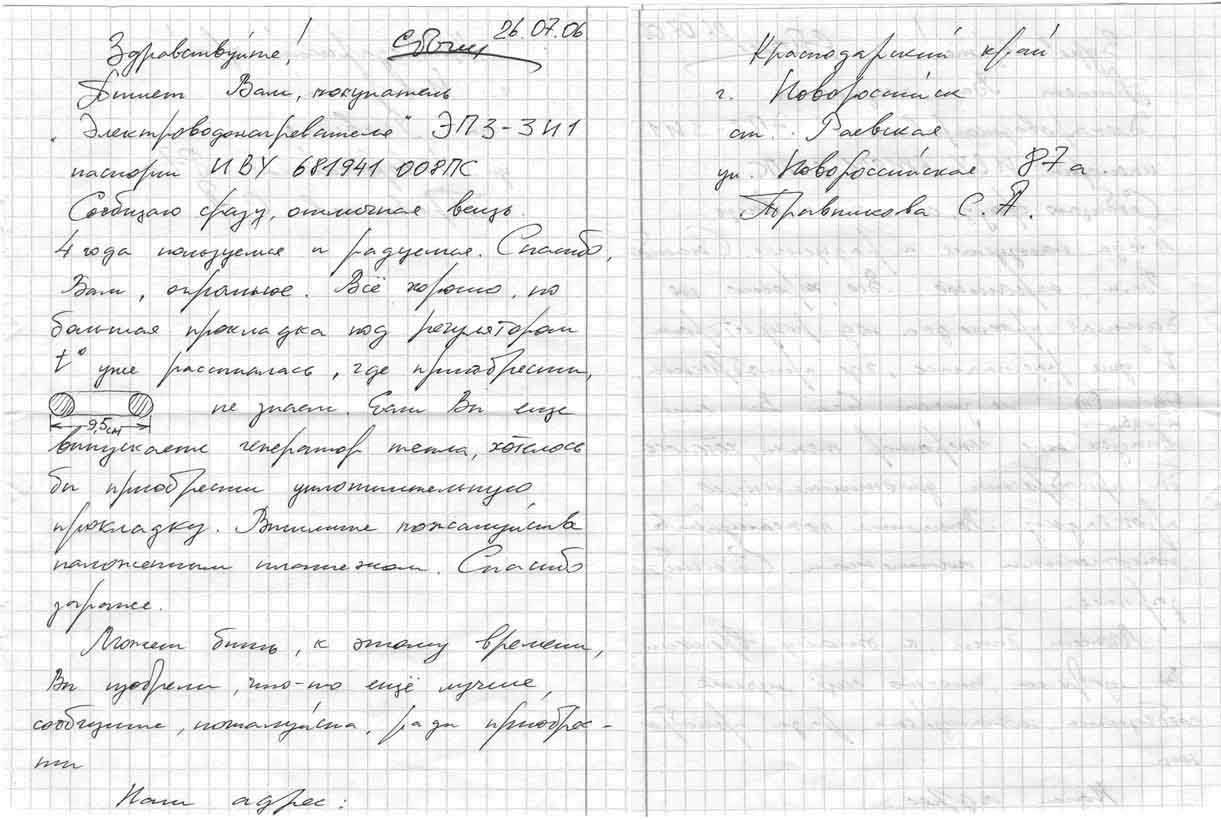 26.07.06
Здравствуйте!
Пишет Вам, покупатель
"Электроводонагревателя" ЭПЗ-3И1
паспорт ИВУ 681941 008ПС
Сообщаю сразу, отличная вещь.
4 года пользуемся и радуемся. Спасибо,
Вам, огромное. Всё хорошо, но
большая прокладка под регулятором
t° уже рассыпалась, где приобрести,
не знаем. Если Вы еще
9,5см
выпускаете генератор тепла, хотелось
бы приобрести уплотнительную
прокладку. Вышлите пожалуйста
наложенным платежом. Спасибо
заранее.
Может быть, к этому времени,
Вы изобрели, что-то ещё лучше,
сообщите, пожалуйста, рады приобрес-
ти
Наш адрес:
Краснодарский край
г. Новороссийск
ст. Раевская
ул. Новороссийская 87а
Травникова С.А.